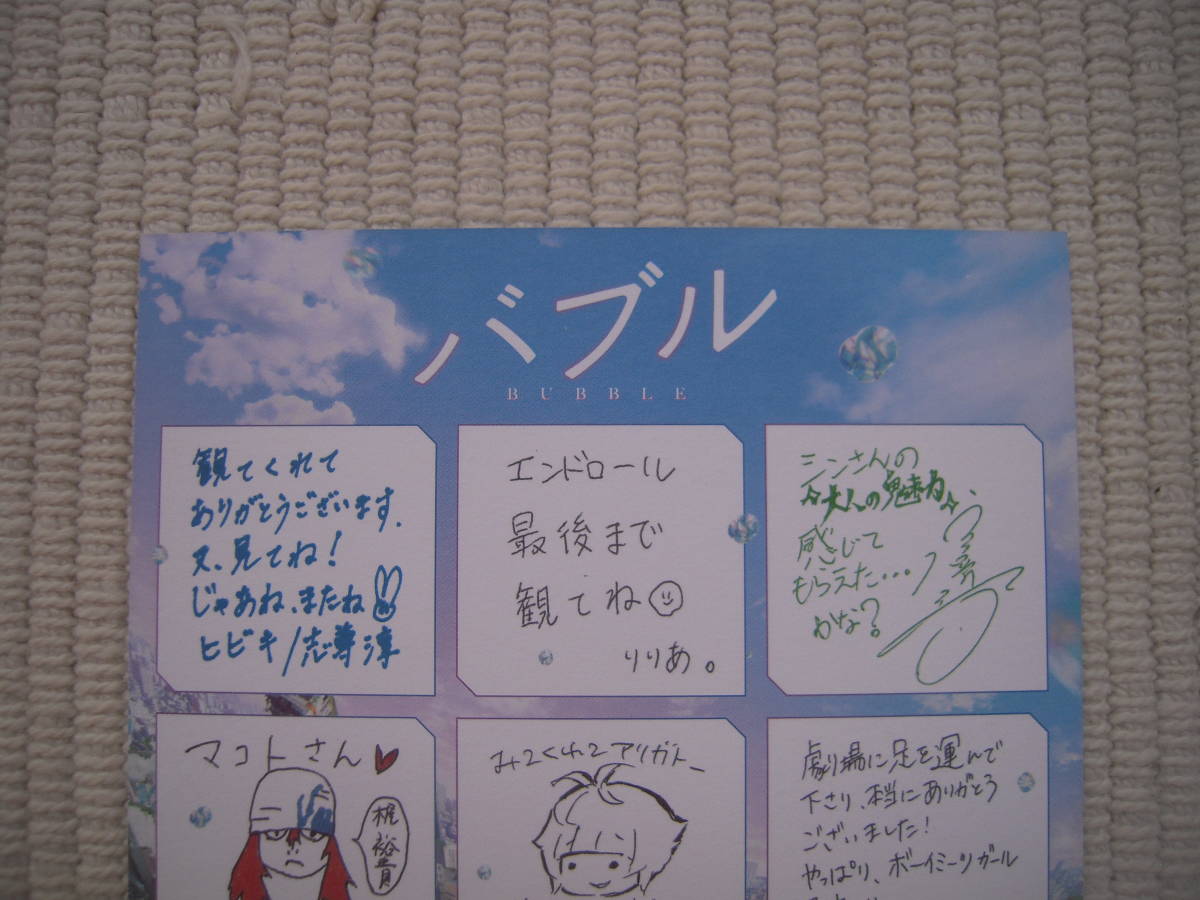 バブル
BUBBLE
観てくれて
ありがとうございます.
又、見てね!
じゃあね、またね
ヒビキ/志尊淳
エンドロール
最後まで
観てね
りりあ。
シンさんの
☆大人の魅力☆
感じて
もらえた…
かな?
マコトさん♥
梶裕貴
みてくれてアリガトー
劇場に足を運んで
下さり、本当にありがとう
ございました!
やっぱり、ボーイミーツガール